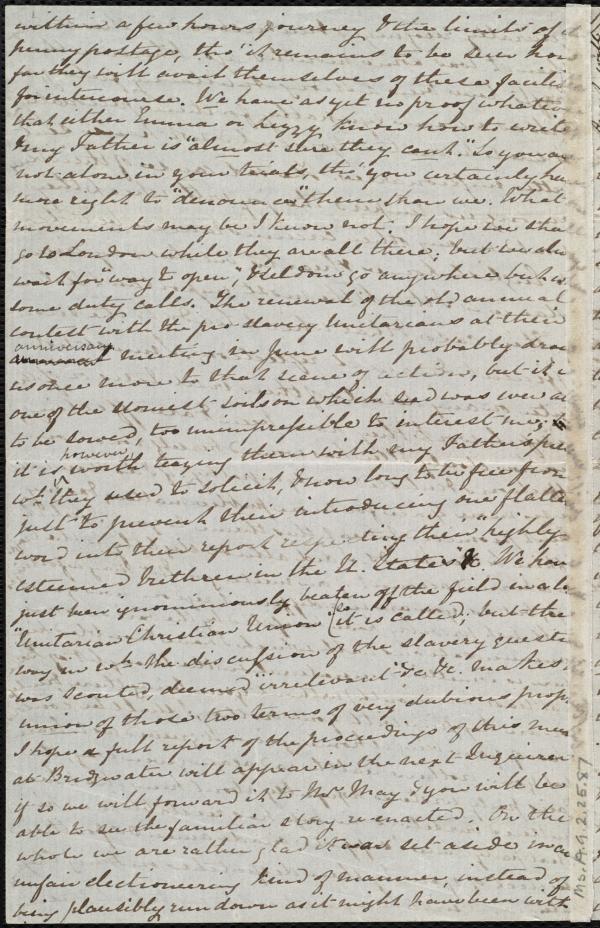 within a few hours journey & the limits of a
penny postage, tho' it remains to be seen how
far they will avail themselves of these facili
for intercourse. We have as yet no proof whatever
that either Emma or Lizzy, know how to write
& my Father is "almost sure they can't." So you are
not alone in your trials, tho' you certainly have
more right to "denounce" them than we. What
movements may be I know not. I hope we shall
go to London while they are all there; but we alw
wait for "way to open", & seldom go anywhere but w
some duty calls. The renewal of the old annual
contest with the pro-slavery Unitarians at their
anniversary
meeting in June will probably draw
us once more to that scene of action, but it is
one of the stoniest soils on which seed was ever a
to be sowed, too unimpressible to interest me;
it is however worth teazing them with my Father's pre
wh. they used to solicit, & now long to be free from
just to prevent their introducing one flatte
word into their report respecting their "highly-
esteemed brethren in the U. States" &c. We have
just been ignominiously beaten off the field in a
"Unitarian Christian Union" (it is called; but the
way in wh. the discussion of the slavery questi
was scouted, deemed "irrelevant" &c &c. makes
union of those two terms of very dubious prop
I hope a full report of the proceedings of this mee
at Bridgwater will appear in the next Inquirer
if so we will forward it to Mr. May & you will be
able to see the familiar story re-enacted. On the
whole we are rather glad it was set aside in an
unfair electioneering kind of manner, instead of
being plausibly run down as it might have been with
Ms. A.9.2.25.87